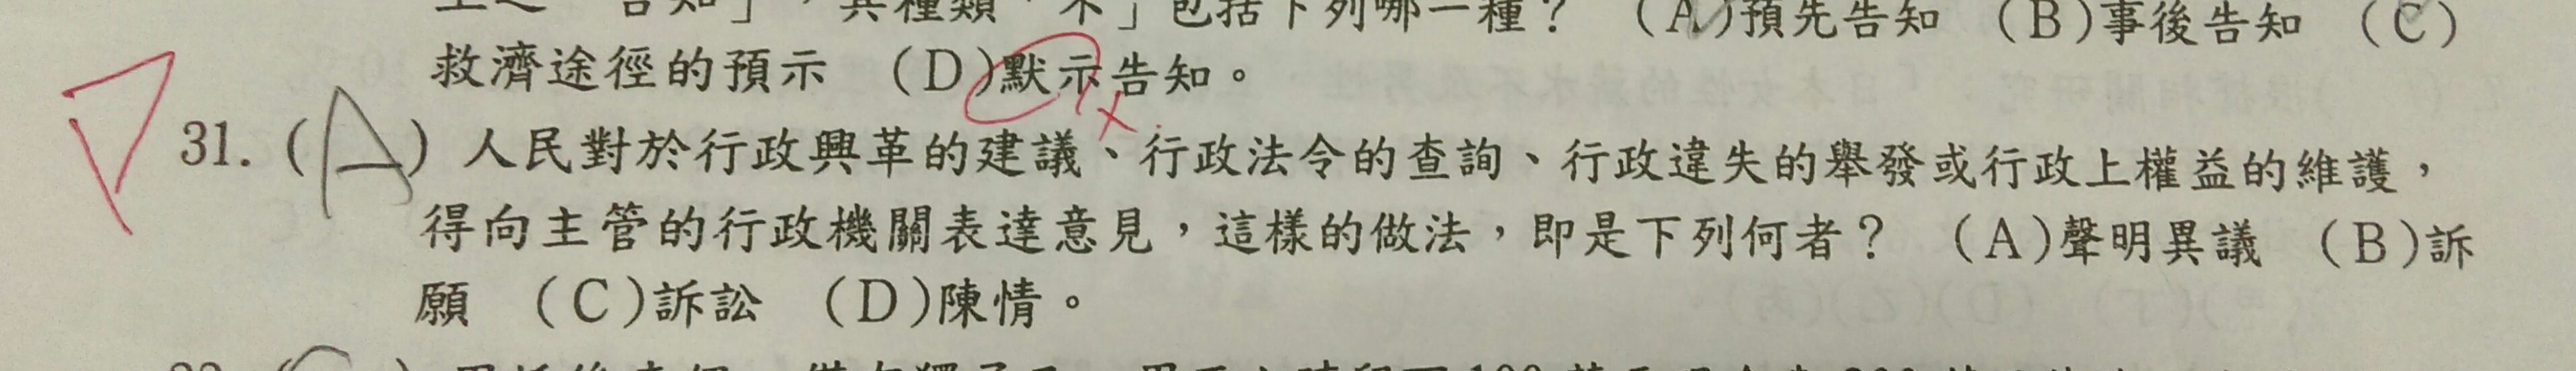 告知」,其種類「不」包括下列哪一種? (A)預先告知 (B)事後告知 (C)
救濟途徑的預示 (D)默示告知。
31. (A) 人民對於行政興革的建議、行政法令的查詢、行政違失的舉發或行政上權益的維護,
得向主管的行政機關表達意見,這樣的做法,即是下列何者? (A)聲明異議 (B)訴
願 (C)訴訟 (D)陳情。